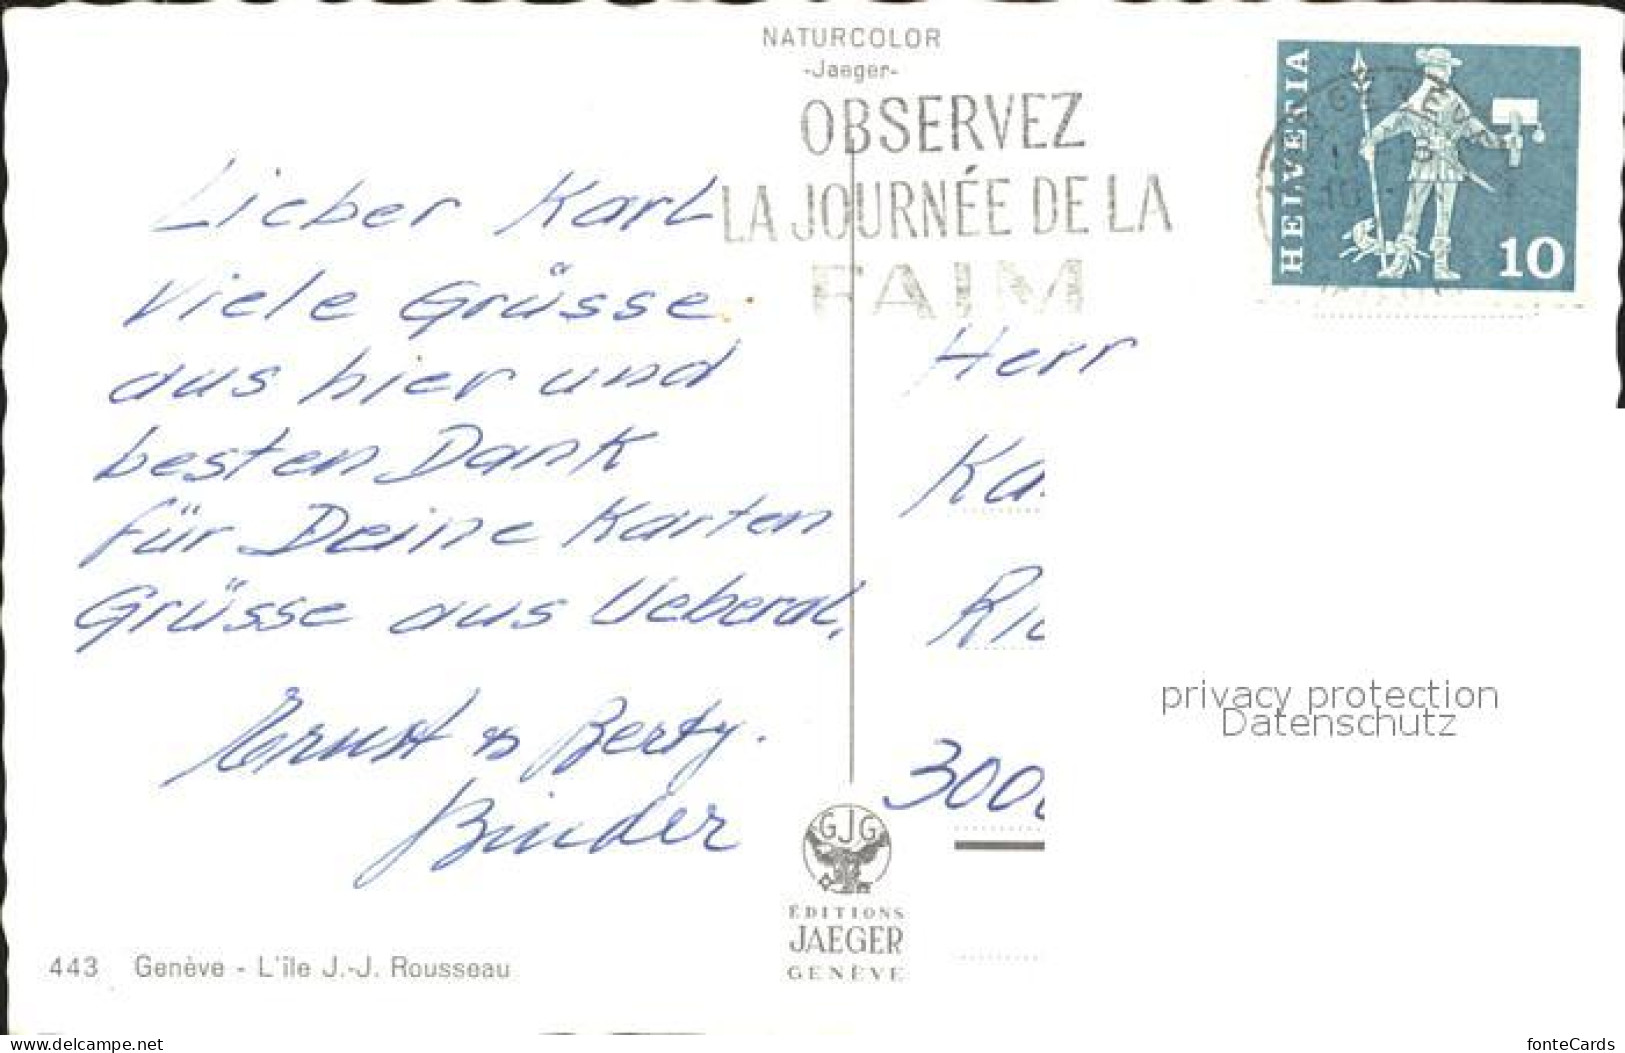 NATURCOLOR
-Jaeger-
OBSERVEZ
LA JOURNÉE DE LA
FAIM
HELVETIA
10
GENÈVE
Lieber Karl
Viele Grüsse
aus hier und
besten Dank
für Deine Karten
Grüsse aus Ueberal,
Ernst & Berty.
Binder
Herr
Ka
300
privacy protection
Datenschutz
GJG
ÉDITIONS
JAEGER
GENÈVE
443 Genève - L'île J.-J. Rousseau
www.delcampe.net
fonteCards